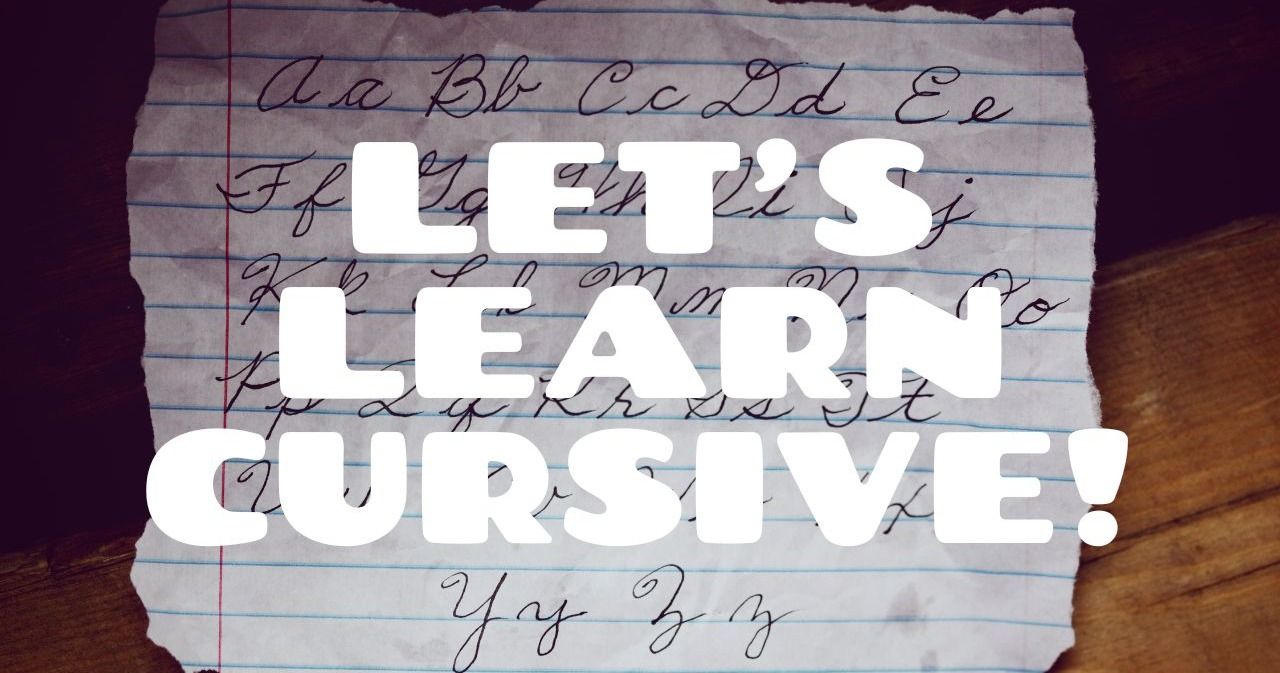 Aa Bb Cc Dd Ee
Ff Gg Hh Ii Jj
LET'S
Kk Ll Mm Nn Oo
LEARN
Pp Qq Rr Ss Tt
CURSIVE!
Yy Zz